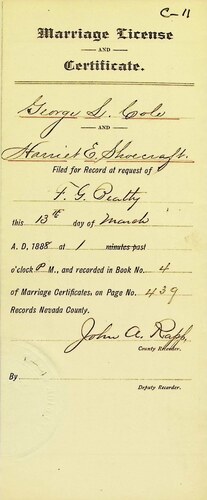 C-11
Marriage License
AND
Certificate.
George S. Cole
AND
Harriet E. Shoecraft.
Filed for Record at request of
F. G. Beatty
this 13th day of March
A. D. 1888 at 1 minutes past
o'clock P M., and recorded in Book No. 4
of Marriage Certificates, on Page No. 439
Records Nevada County.
John A. Rapp,
County Recorder.
By
Deputy Recorder.